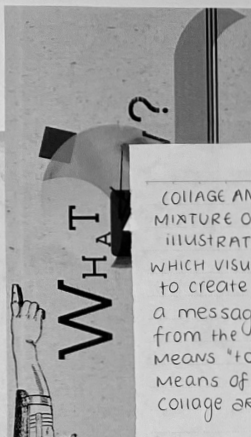 WHAT
?
COllAGE AN
MIXTURE O
illUSTRAT
WHICH VISU
to create
a messag
from the
MEANS "to
MEANS of
collage ar